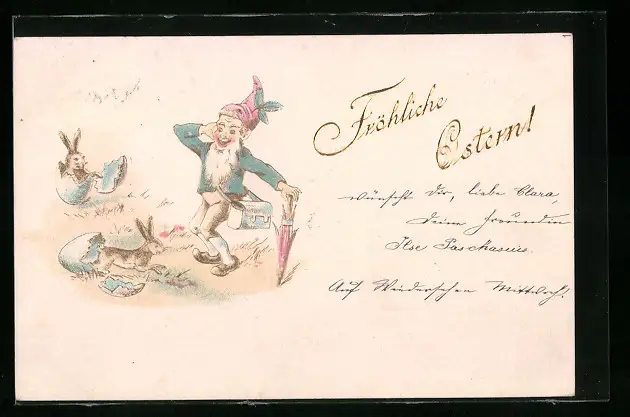 Fröhliche
Ostern!
wünscht Dir, liebe Clara,
Deine Freundin
Ilse Paschasius.
Auf Wiedersehen Mittwoch!